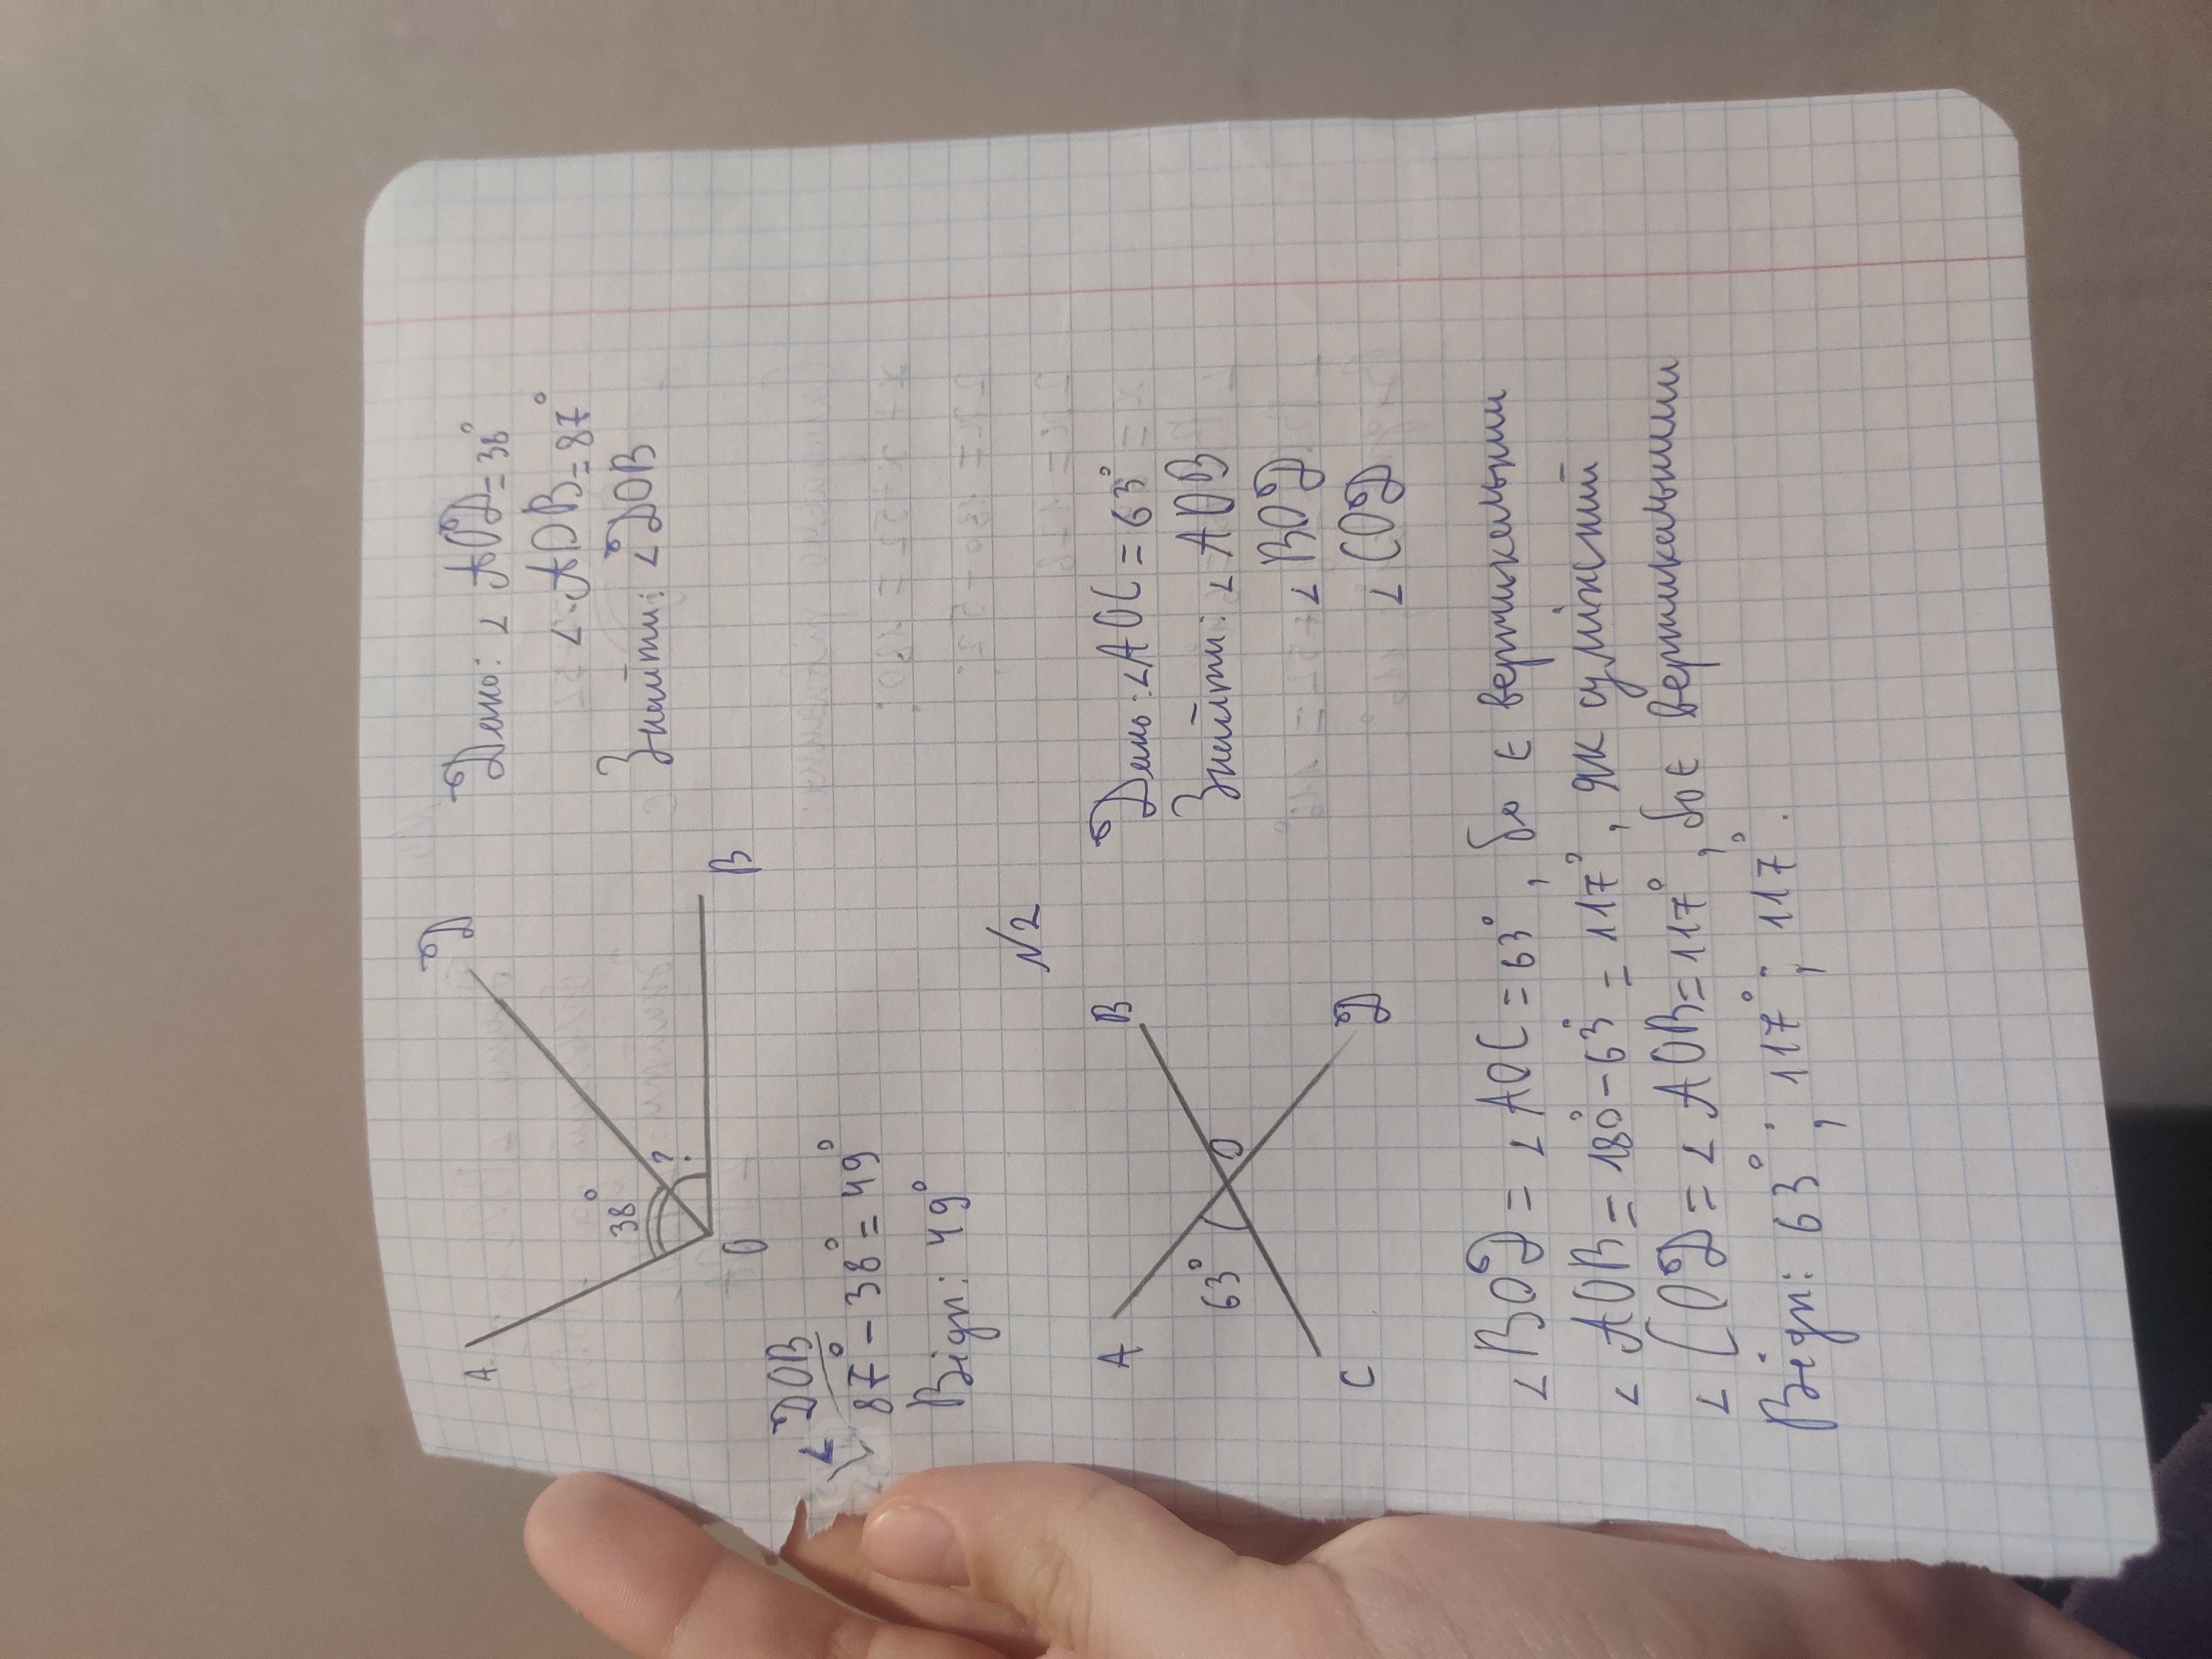 A
D
38°
?
O
B
Дано: ∠ AOD=38°
∠ AOB=87°
Знайти: ∠DOB
∠ DOB
87° - 38° = 49°
Відп: 49°
N2
A
B
63°
O
C
D
Дано: ∠AOC = 63°
Знайти: ∠ AOB
∠ BOD
∠ COD
∠ BOD = ∠ AOC = 63°, бо є вертикальними
∠ AOB = 180° - 63° = 117°, як суміжний
∠ COD = ∠ AOB = 117°, бо є вертикальними
Відп: 63°; 117°; 117°.